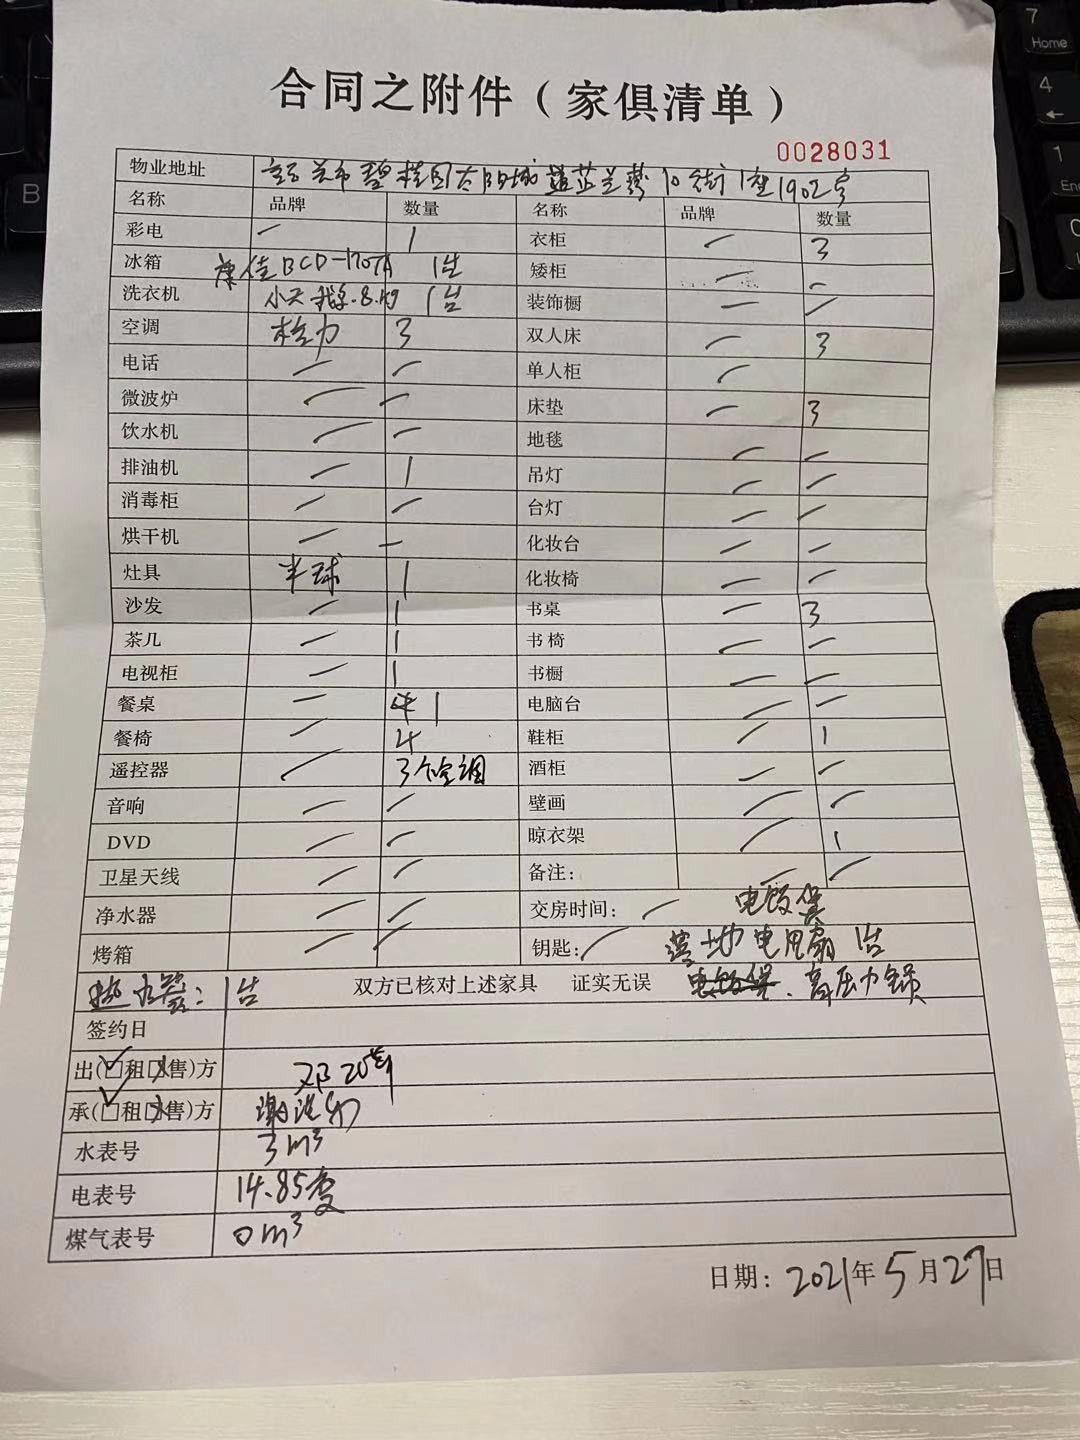 合同之附件（家俱清单）
0028031
物业地址 碧桂园太阳城蓝芷兰湾10街1座1902字
名称 品牌 数量 名称 品牌 数量
彩电 — 1 衣柜 — 3
冰箱 康佳BCD-170TA 1台 矮柜 — —
洗衣机 小天鹅 8.kg 1台 装饰橱 — —
空调 格力 3 双人床 — 3
电话 — — 单人柜 —
微波炉 — — 床垫 — 3
饮水机 — — 地毯 — —
排油机 — 1 吊灯 — —
消毒柜 — — 台灯 — —
烘干机 — — 化妆台 — —
灶具 半球 1 化妆椅 — —
沙发 — 1 书桌 — 3
茶几 — 1 书椅 — —
电视柜 — 1 书橱 — —
餐桌 — 1 电脑台 — —
餐椅 — 4 鞋柜 — 1
遥控器 — 3个空调 酒柜 — —
音响 — — 壁画 — —
DVD — — 晾衣架 — 1
卫星天线 — — 备注: — —
净水器 — — 交房时间: — 电饭煲
烤箱 — — 钥匙: — 落地电风扇1台
热水器: 1台 双方已核对上述家具 证实无误 电饭煲、高压力锅
签约日
出(□租□售)方 邓
承(□租□售)方 谢
水表号 3m³
电表号 14.85度
煤气表号 0m³
日期: 2021年5月27日